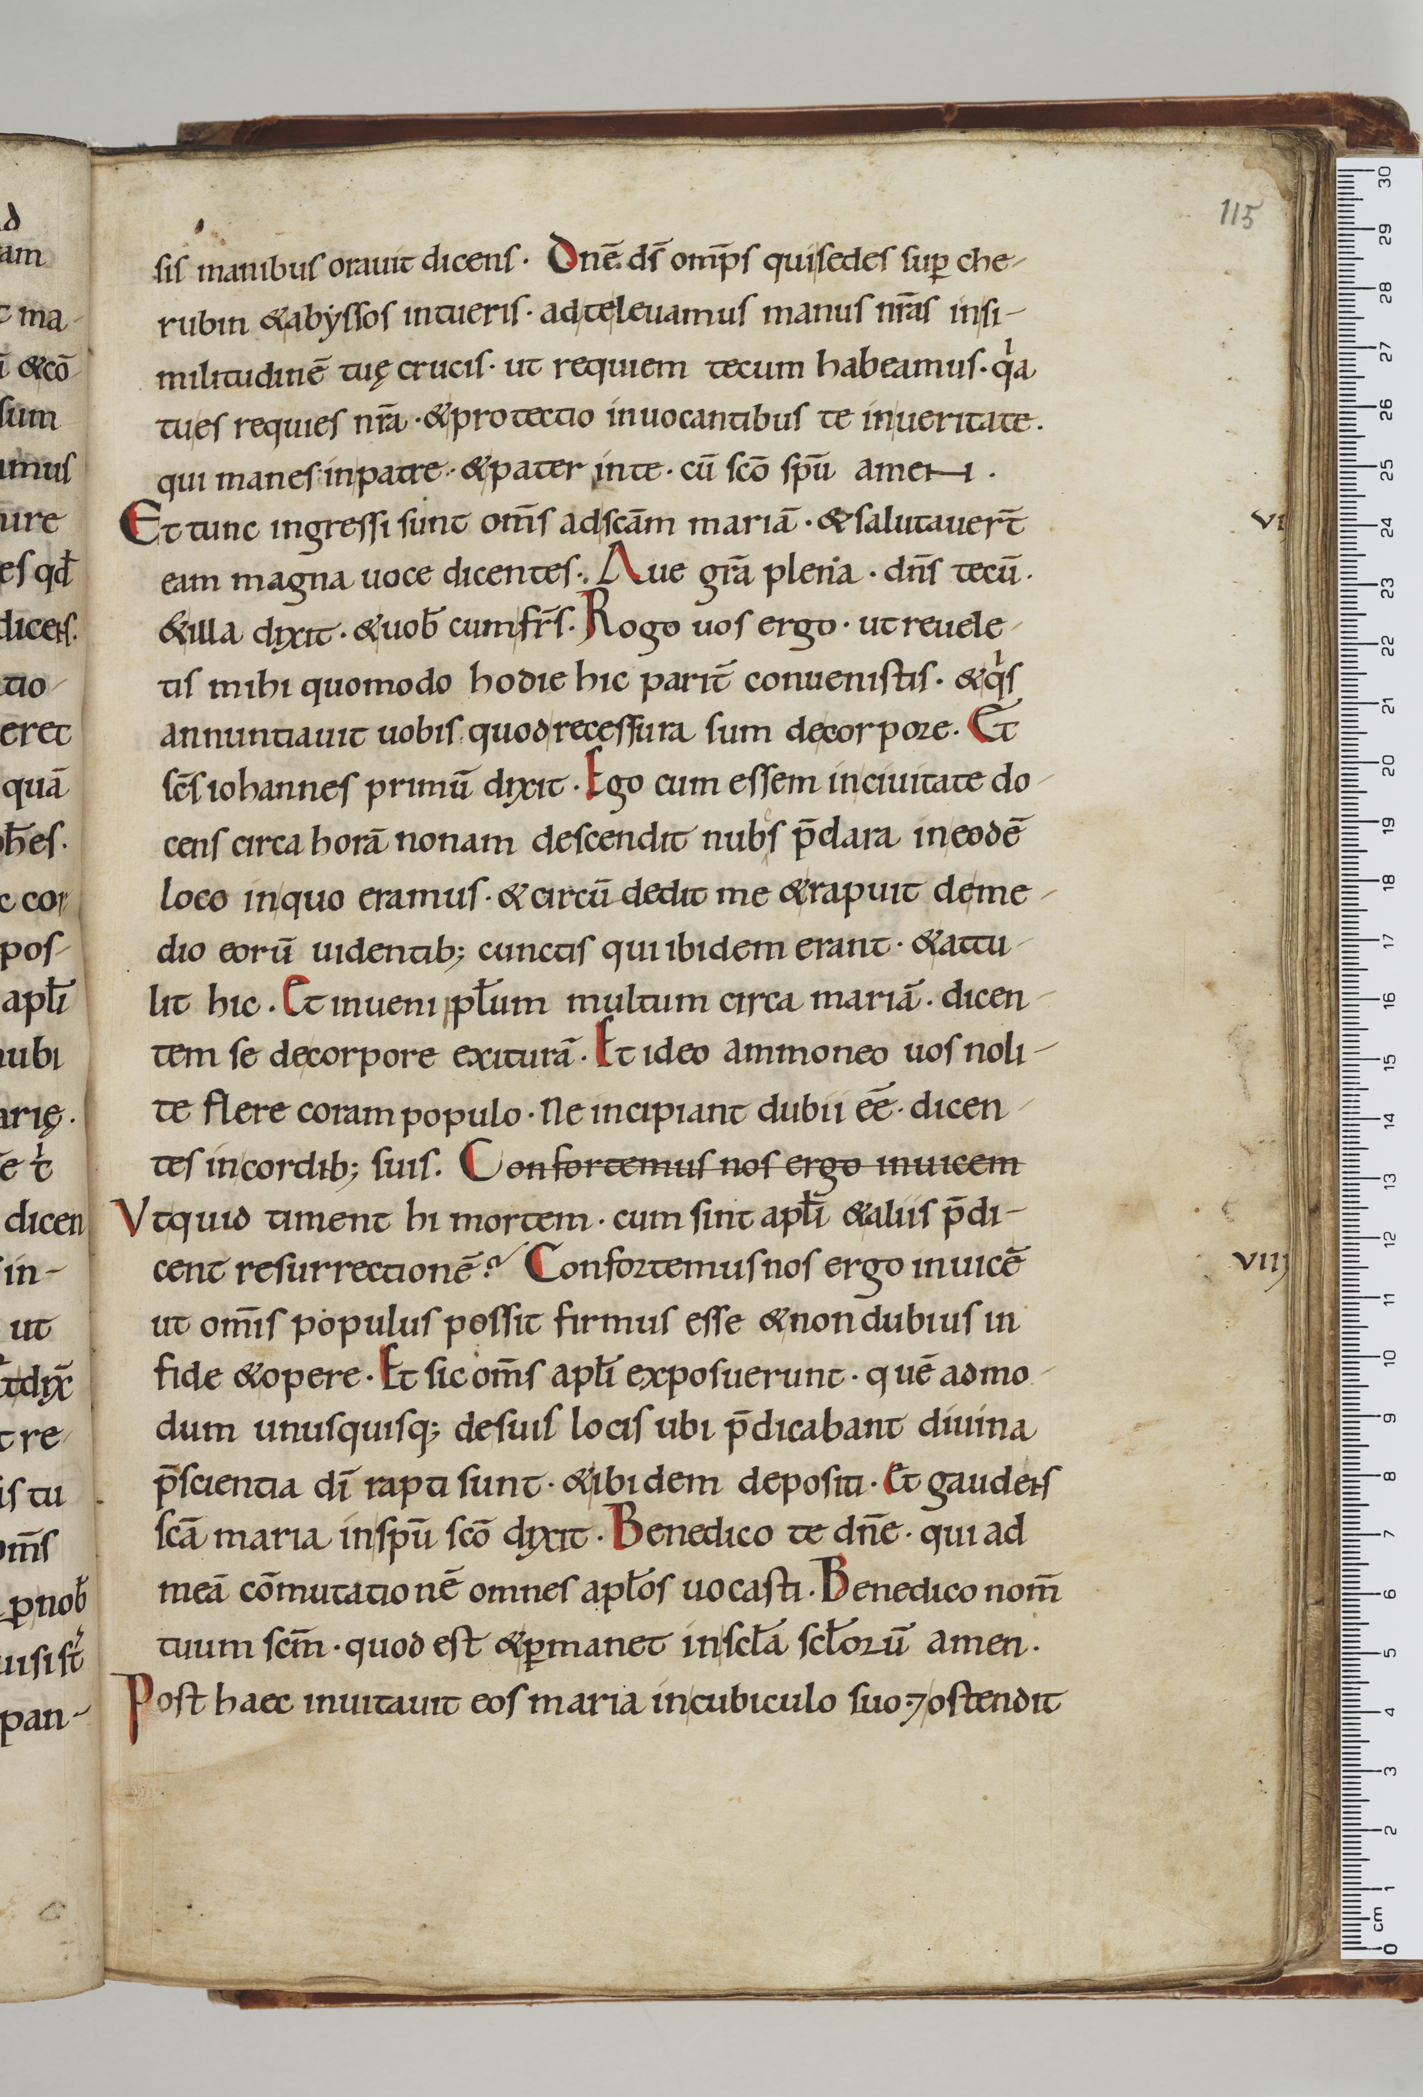 115
sis manibus orauit dicens· Dnē ds̄ omp̄s qui sedes suꝑ che-
rubin & abyssos intueris· ad te leuamus manus nrā̄s in si-
militudinē tuę crucis· ut requiem tecum habeamus· qͥa
tu es requies nrā· & protectio inuocantibus te in ueritate.
qui manes in patre· & pater in te· cū scō spū amen.
Et tunc ingressi sunt om̄s ad scām mariā· & salutauer̄t
vi
eam magna uoce dicentes· Aue grā plena· dn̄s tecū·
& illa dixit· & uob̄ cum fr̄s· Rogo uos ergo· ut reuele-
tis mihi quomodo hodie hic parit̄ conuenistis· & qͥs
annuntiauit uobis quod recessura sum de corpore· Et
sc̄s iohannes primū dixit· Ego cum essem in ciuitate do-
cens circa horā nonam descendit nubs p̄clara in eodē
loco in quo eramus· & circū dedit me & rapuit de me-
dio eorū uidentib; cunctis qui ibidem erant· & attu-
lit hic· Et inueni pl̄um multum circa mariā· dicen-
tem se de corpore exiturā· Et ideo ammoneo uos noli-
te flere coram populo· Ne incipiant dubii eē· dicen-
tes in cordib; suis. Confortemus nos ergo inuicem
Vt quid timent hi mortem· cum sint apl̄i & aliis p̄di-
cent resurrectionē? Confortemus nos ergo inuicē
viij
ut om̄is populus possit firmus esse & non dubius in
fide & opere· Et sic om̄s apl̄i exposuerunt· quē admo-
dum unusquisq; de suis locis ubi p̄dicabant diuina
p̄scientia dī rapti sunt· & ibidem depositi· Et gaudens
scā maria in spū scō dixit· Benedico te dn̄e· qui ad
meā cōmutationē omnes apl̄os uocasti· Benedico nom̄
tuum scm̄· quod est & ꝑmanet in scl̄a scl̄orū amen.
Post haec inuitauit eos maria in cubiculo suo· ⁊ ostendit